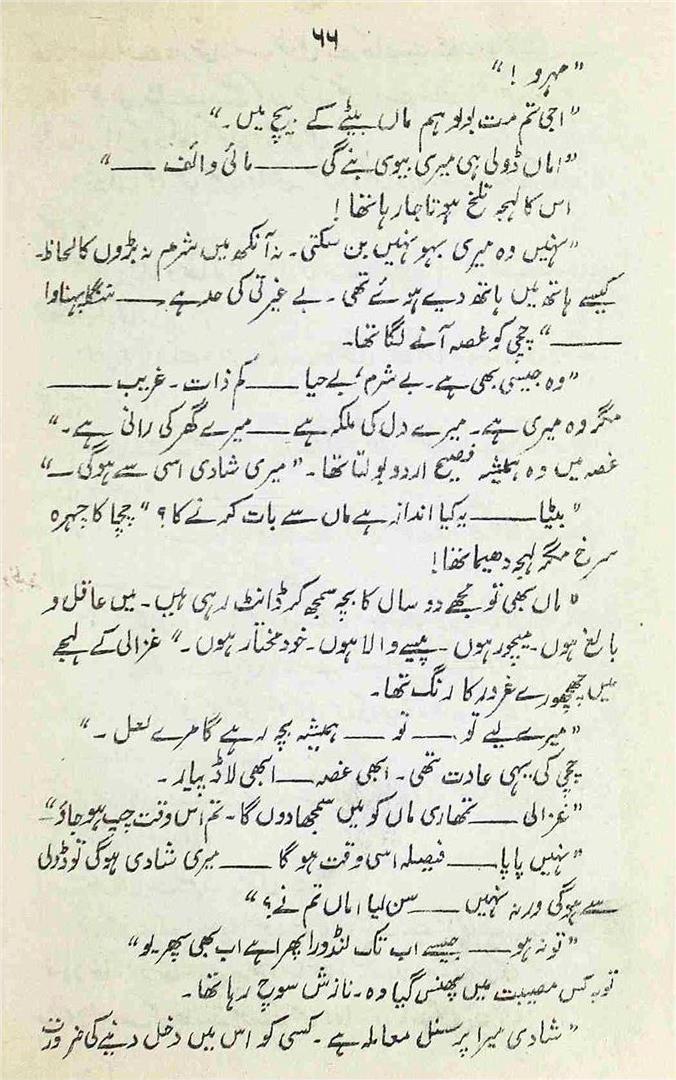 ۶۶
"مہرو!"
"اجی تم مت بولو ہم ماں بیٹے کے بیچ میں۔"
"اماں ڈولی ہی میری بیوی بنے گی ــــ مائی وائف ــــ"
اس کا لہجہ تلخ ہوتا جا رہا تھا!
"نہیں وہ میری بہو نہیں بن سکتی۔ نہ آنکھ میں شرم نہ بڑوں کا لحاظ۔
کیسے ہاتھ میں ہاتھ دیے ہوئے تھی۔ بے غیرتی کی حد ہے ــــ ننگا پہناوا
ــــ" چچی کو غصہ آنے لگا تھا۔
"وہ جیسی بھی ہے۔ بے شرم، بے حیا ــــ کم ذات۔ غریب ــــ
مگر وہ میری ہے۔ میرے دل کی ملکہ ہے ــــ میرے گھر کی رانی ہے۔"
غصہ میں وہ ہمیشہ فصیح اردو بولتا تھا۔ "میری شادی اسی سے ہوگی ــ"
"بیٹا ــــ یہ کیا انداز ہے ماں سے بات کرنے کا؟" چچا کا چہرہ
سرخ مگر لہجہ دھیما تھا!
"ماں بھی تو مجھے دو سال کا بچہ سمجھ کر ڈانٹ رہی ہیں۔ میں عاقل و
بالغ ہوں۔ میچور ہوں۔ پیسے والا ہوں۔ خود مختار ہوں۔" غزالی کے لہجے
میں چھچھورے غرور کا رنگ تھا۔
"میرے لیے تو ــــ تو ــــ ہمیشہ بچہ رہے گا مرے لعل۔"
چچی کی یہی عادت تھی۔ ابھی غصہ ــــ ابھی لاڈ پیار۔
"غزالی ــــ تمھاری ماں کو میں سمجھا دوں گا۔ تم اس وقت چپ ہو جاؤ"
"نہیں پاپا ــــ فیصلہ اسی وقت ہو گا ــــ میری شادی ہوگی تو ڈولی
سے ہوگی ورنہ نہیں ــــ سن لیا اماں تم نے؟"
"تو نہ ہو ــــ جیسے اب تک لنڈورا پھرا ہے اب بھی پھر یو"
توبہ کس مصیبت میں پھنس گیا وہ۔ نازش سوچ رہا تھا۔
"شادی میرا پرسنل معاملہ ہے۔ کسی کو اس میں دخل دینے کی ضرورت